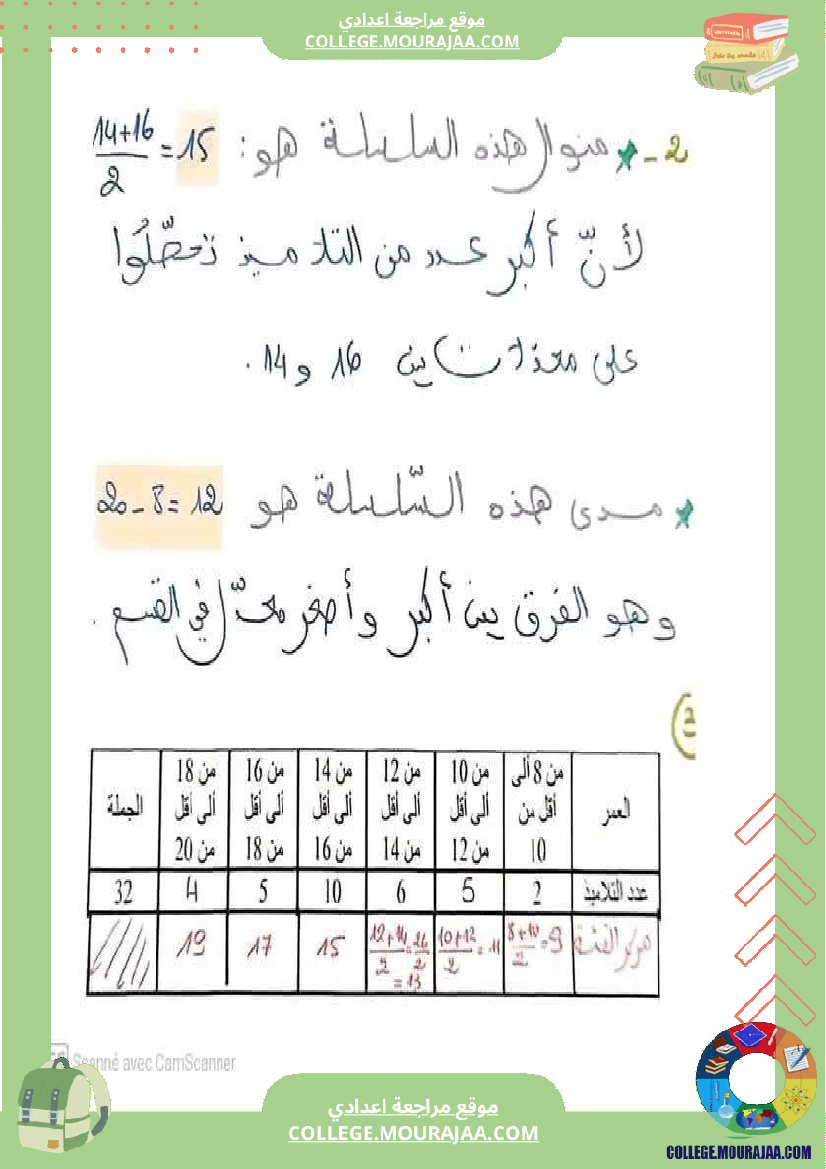 موقع مراجعة اعدادي
COLLEGE.MOURAJAA.COM
2 - * منوال هذه السلسلة هو: 14+16/2 = 15
لأنّ أكبر عدد من التلاميذ تحصّلوا
على معدلات بين 16 و 14.
* مدى هذه السّلسلة هو 20 - 8 = 12
وهو الفرق بين أكبر وأصغر معدّل في القسم.
العمر | من 8 ألى أقل من 10 | من 10 ألى أقل من 12 | من 12 ألى أقل من 14 | من 14 ألى أقل من 16 | من 16 ألى أقل من 18 | من 18 ألى أقل من 20 | الجملة
عدد التلاميذ | 2 | 5 | 6 | 10 | 5 | 4 | 32
مركز الفئة | 8+10/2 = 9 | 10+12/2 = 11 | 12+14/2 = 26/2 = 13 | 15 | 17 | 19
Scanné avec CamScanner
موقع مراجعة اعدادي
COLLEGE.MOURAJAA.COM
COLLEGE.MOURAJAA.COM